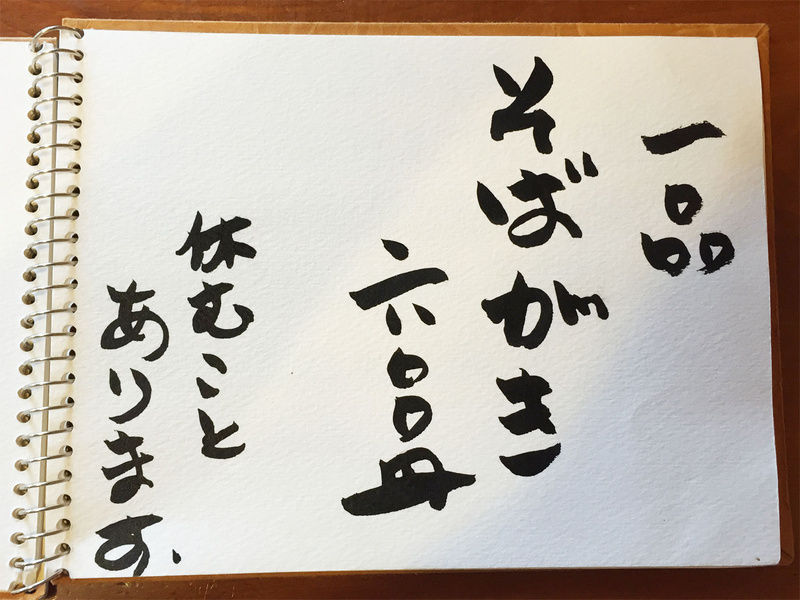 一品
そばがき
六〇〇円
休むこと
あります。